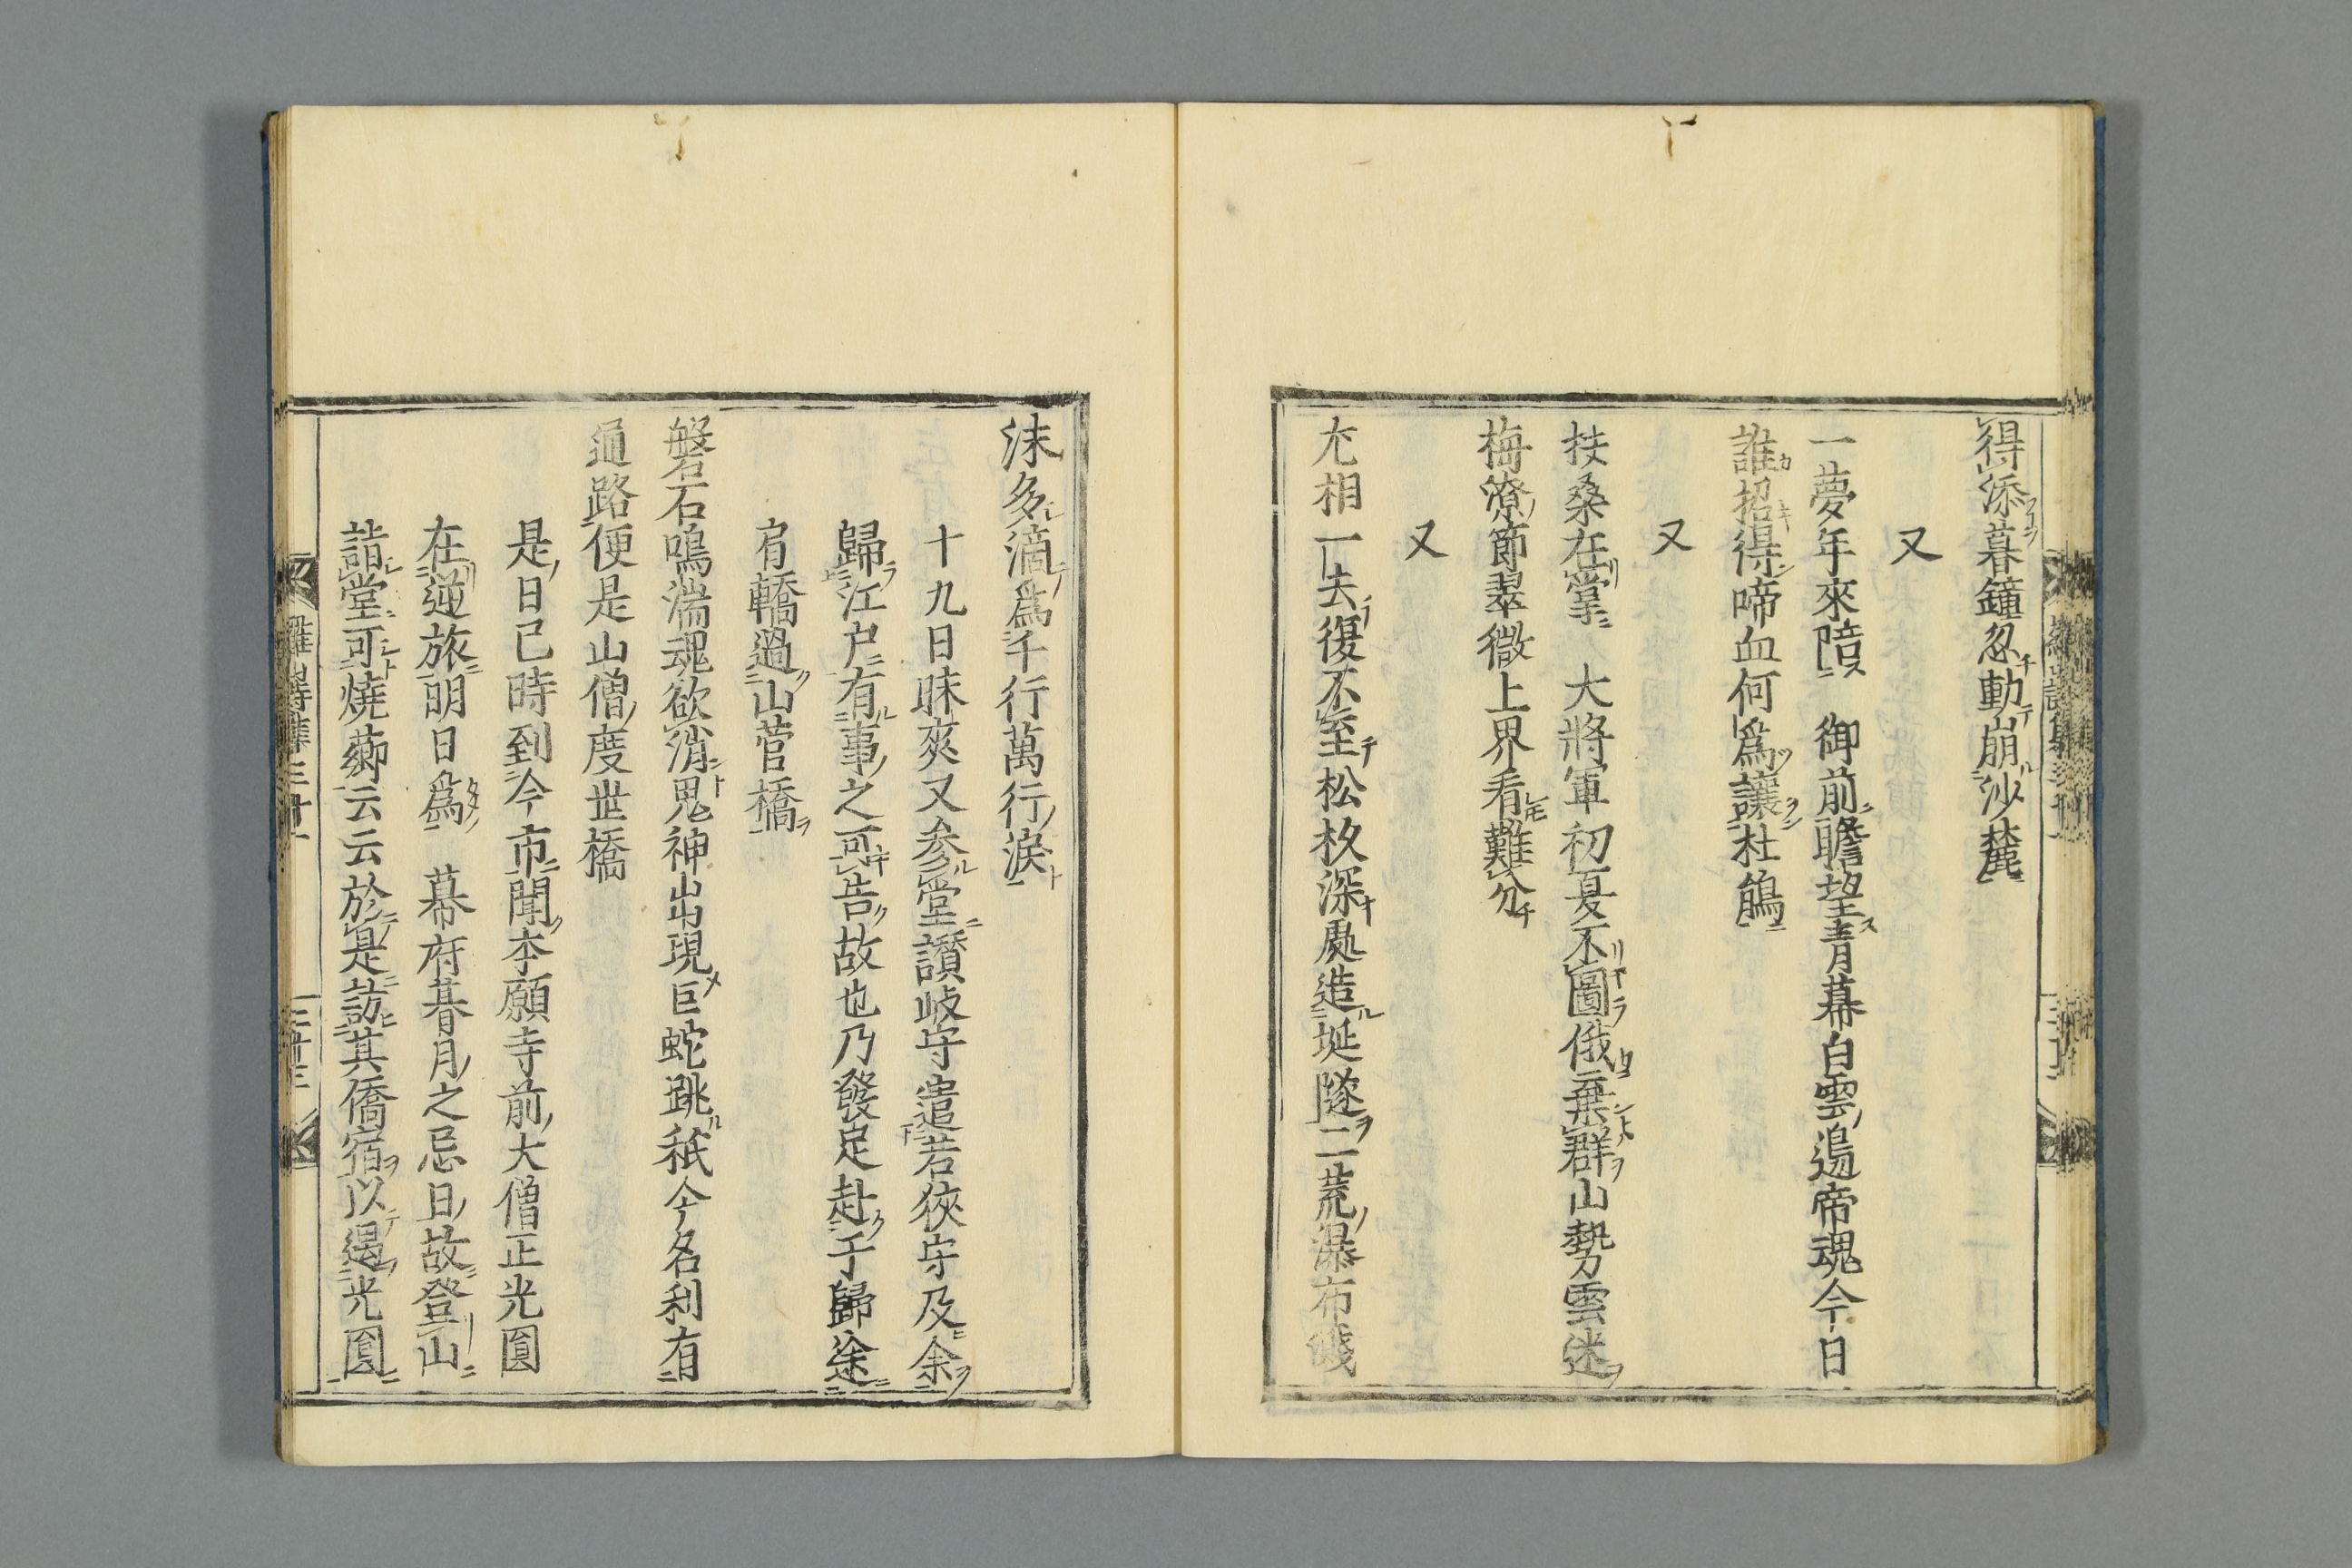 得添暮鐘忽動崩沙麓
又
一夢年來陪 御前瞻望青幕白雲邉帝魂今日
誰招得啼血何爲讓杜鵑
又
扶桑在掌 大將軍初夏不圖俄棄群山勢雲迷
梅潦節翠微上界看難分
又
尤相一去復不至松杦深處造埏隧二荒瀑布濺
沫多滴爲千行萬行淚
十九日昧爽又參堂讃岐守遣若狹守及余
歸江户有事之可告故也乃發足赴于歸途
肩轎過山菅橋
磐石鳴湍魂欲消鬼神出現巨蛇跳秖今名利有
通路便是山僧度世橋
是日巳時到今市聞本願寺前大僧正光圓
在逆旅明日爲 幕府朞月之忌日故登山
詣堂可燒薌云云於是訪其僑宿以遏光圓
羅山詩集三十一
三十三